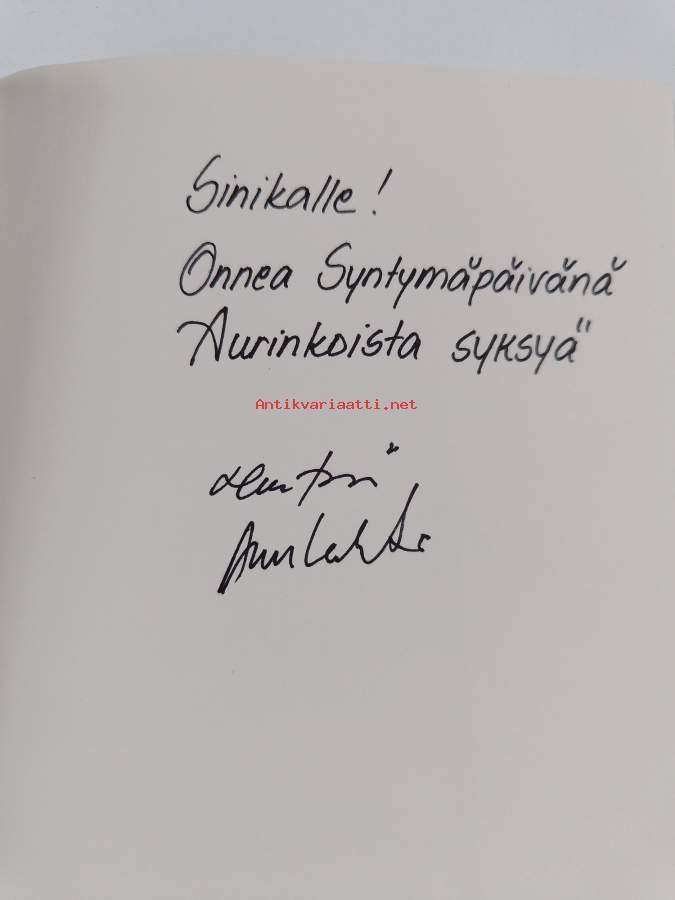 Sinikalle!
Onnea Syntymäpäivänä
Aurinkoista syksyä
Antikvariaatti.net